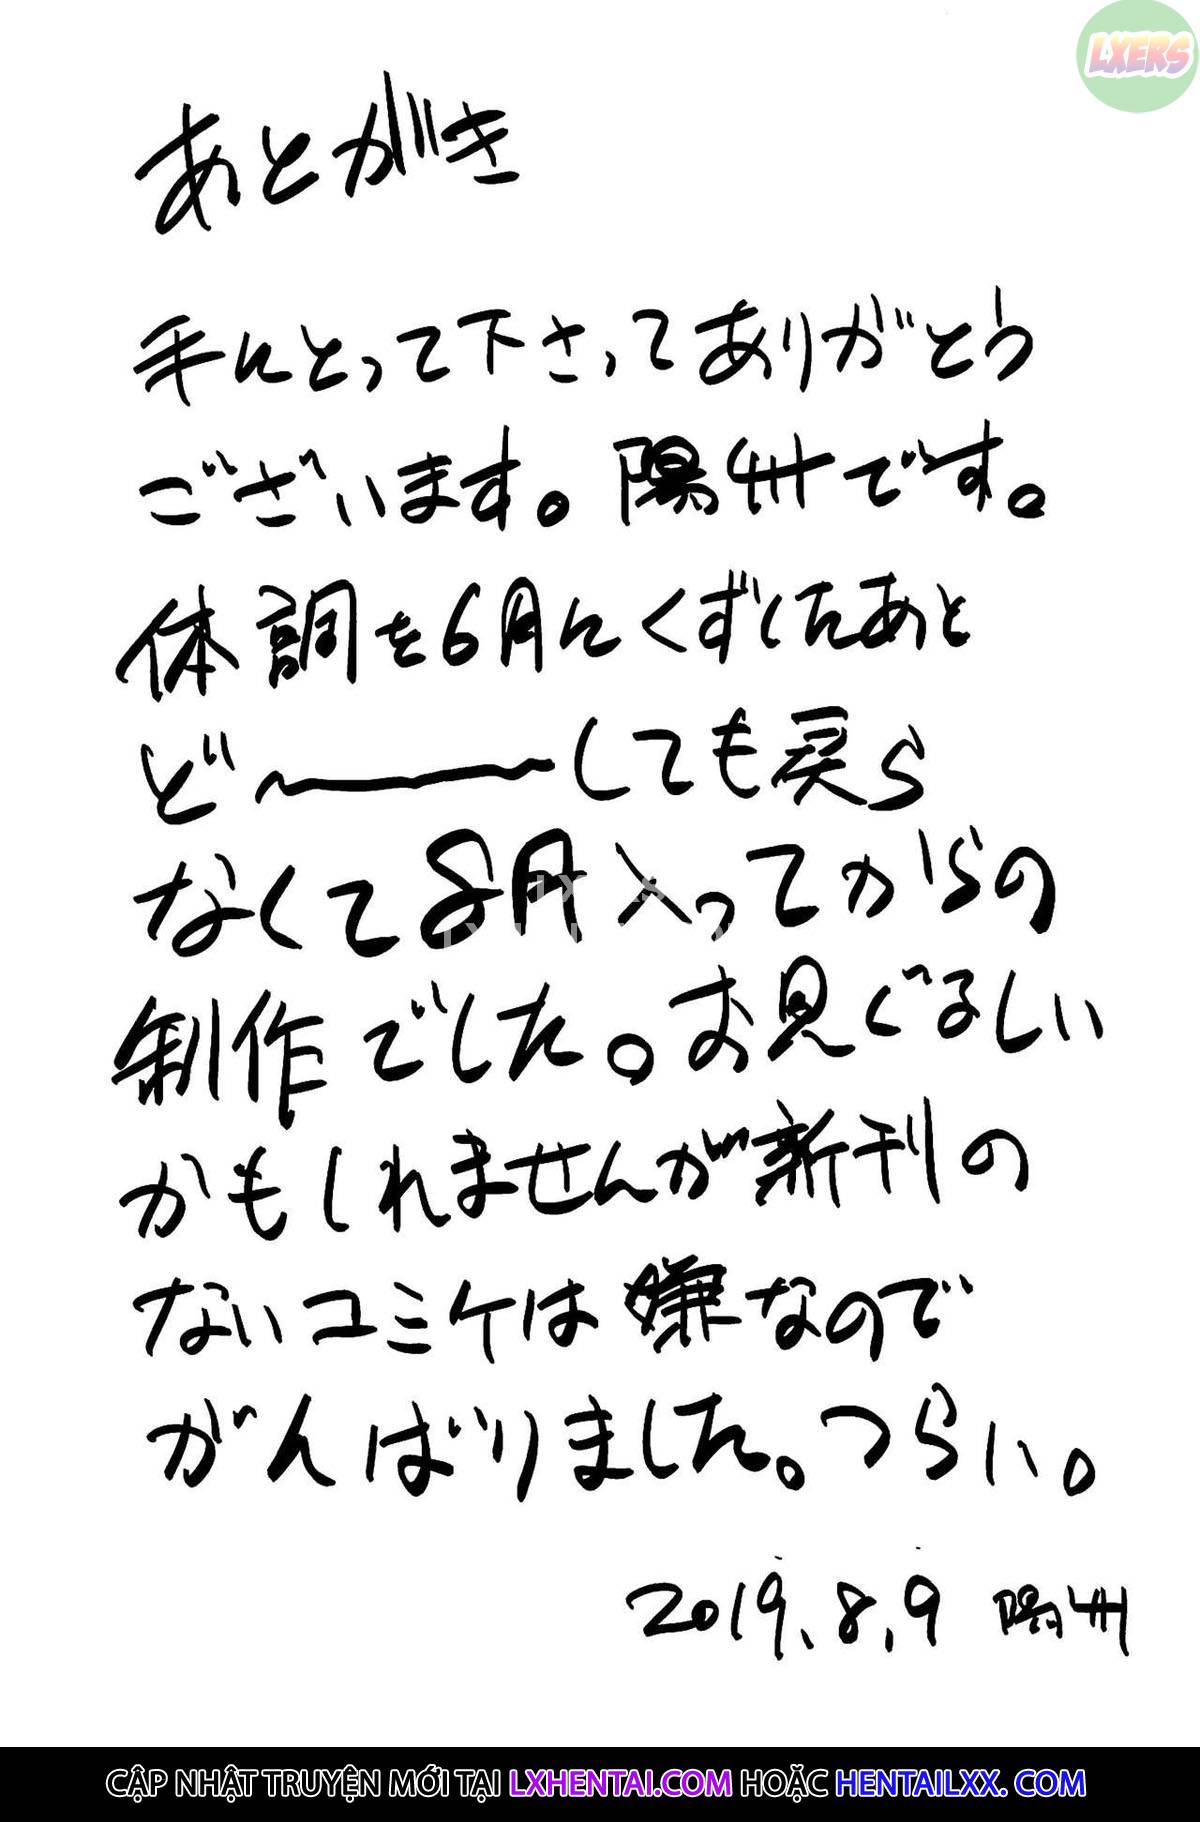 LXERS
あとがき
手にとって下さってありがとう
ございます。陽州です。
体調を6月にくずしたあと
ど〜しても戻ら
なくて8月入ってからの
制作でした。お見ぐるしい
かもしれませんが新刊の
ないコミケは嫌なので
がんばりました。つらい。
2019.8.9 陽州
CẬP NHẬT TRUYỆN MỚI TẠI LXHENTAI.COM HOẶC HENTAILXX. COM